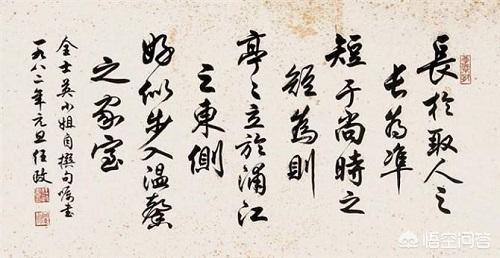 長於取人之
長為準
短于尚時之
短為則
亭々立於浦江
之東側
好似步入温馨
之家室
金士英小姐自撰句嘱書
一九八二年元旦任政
悟空问答